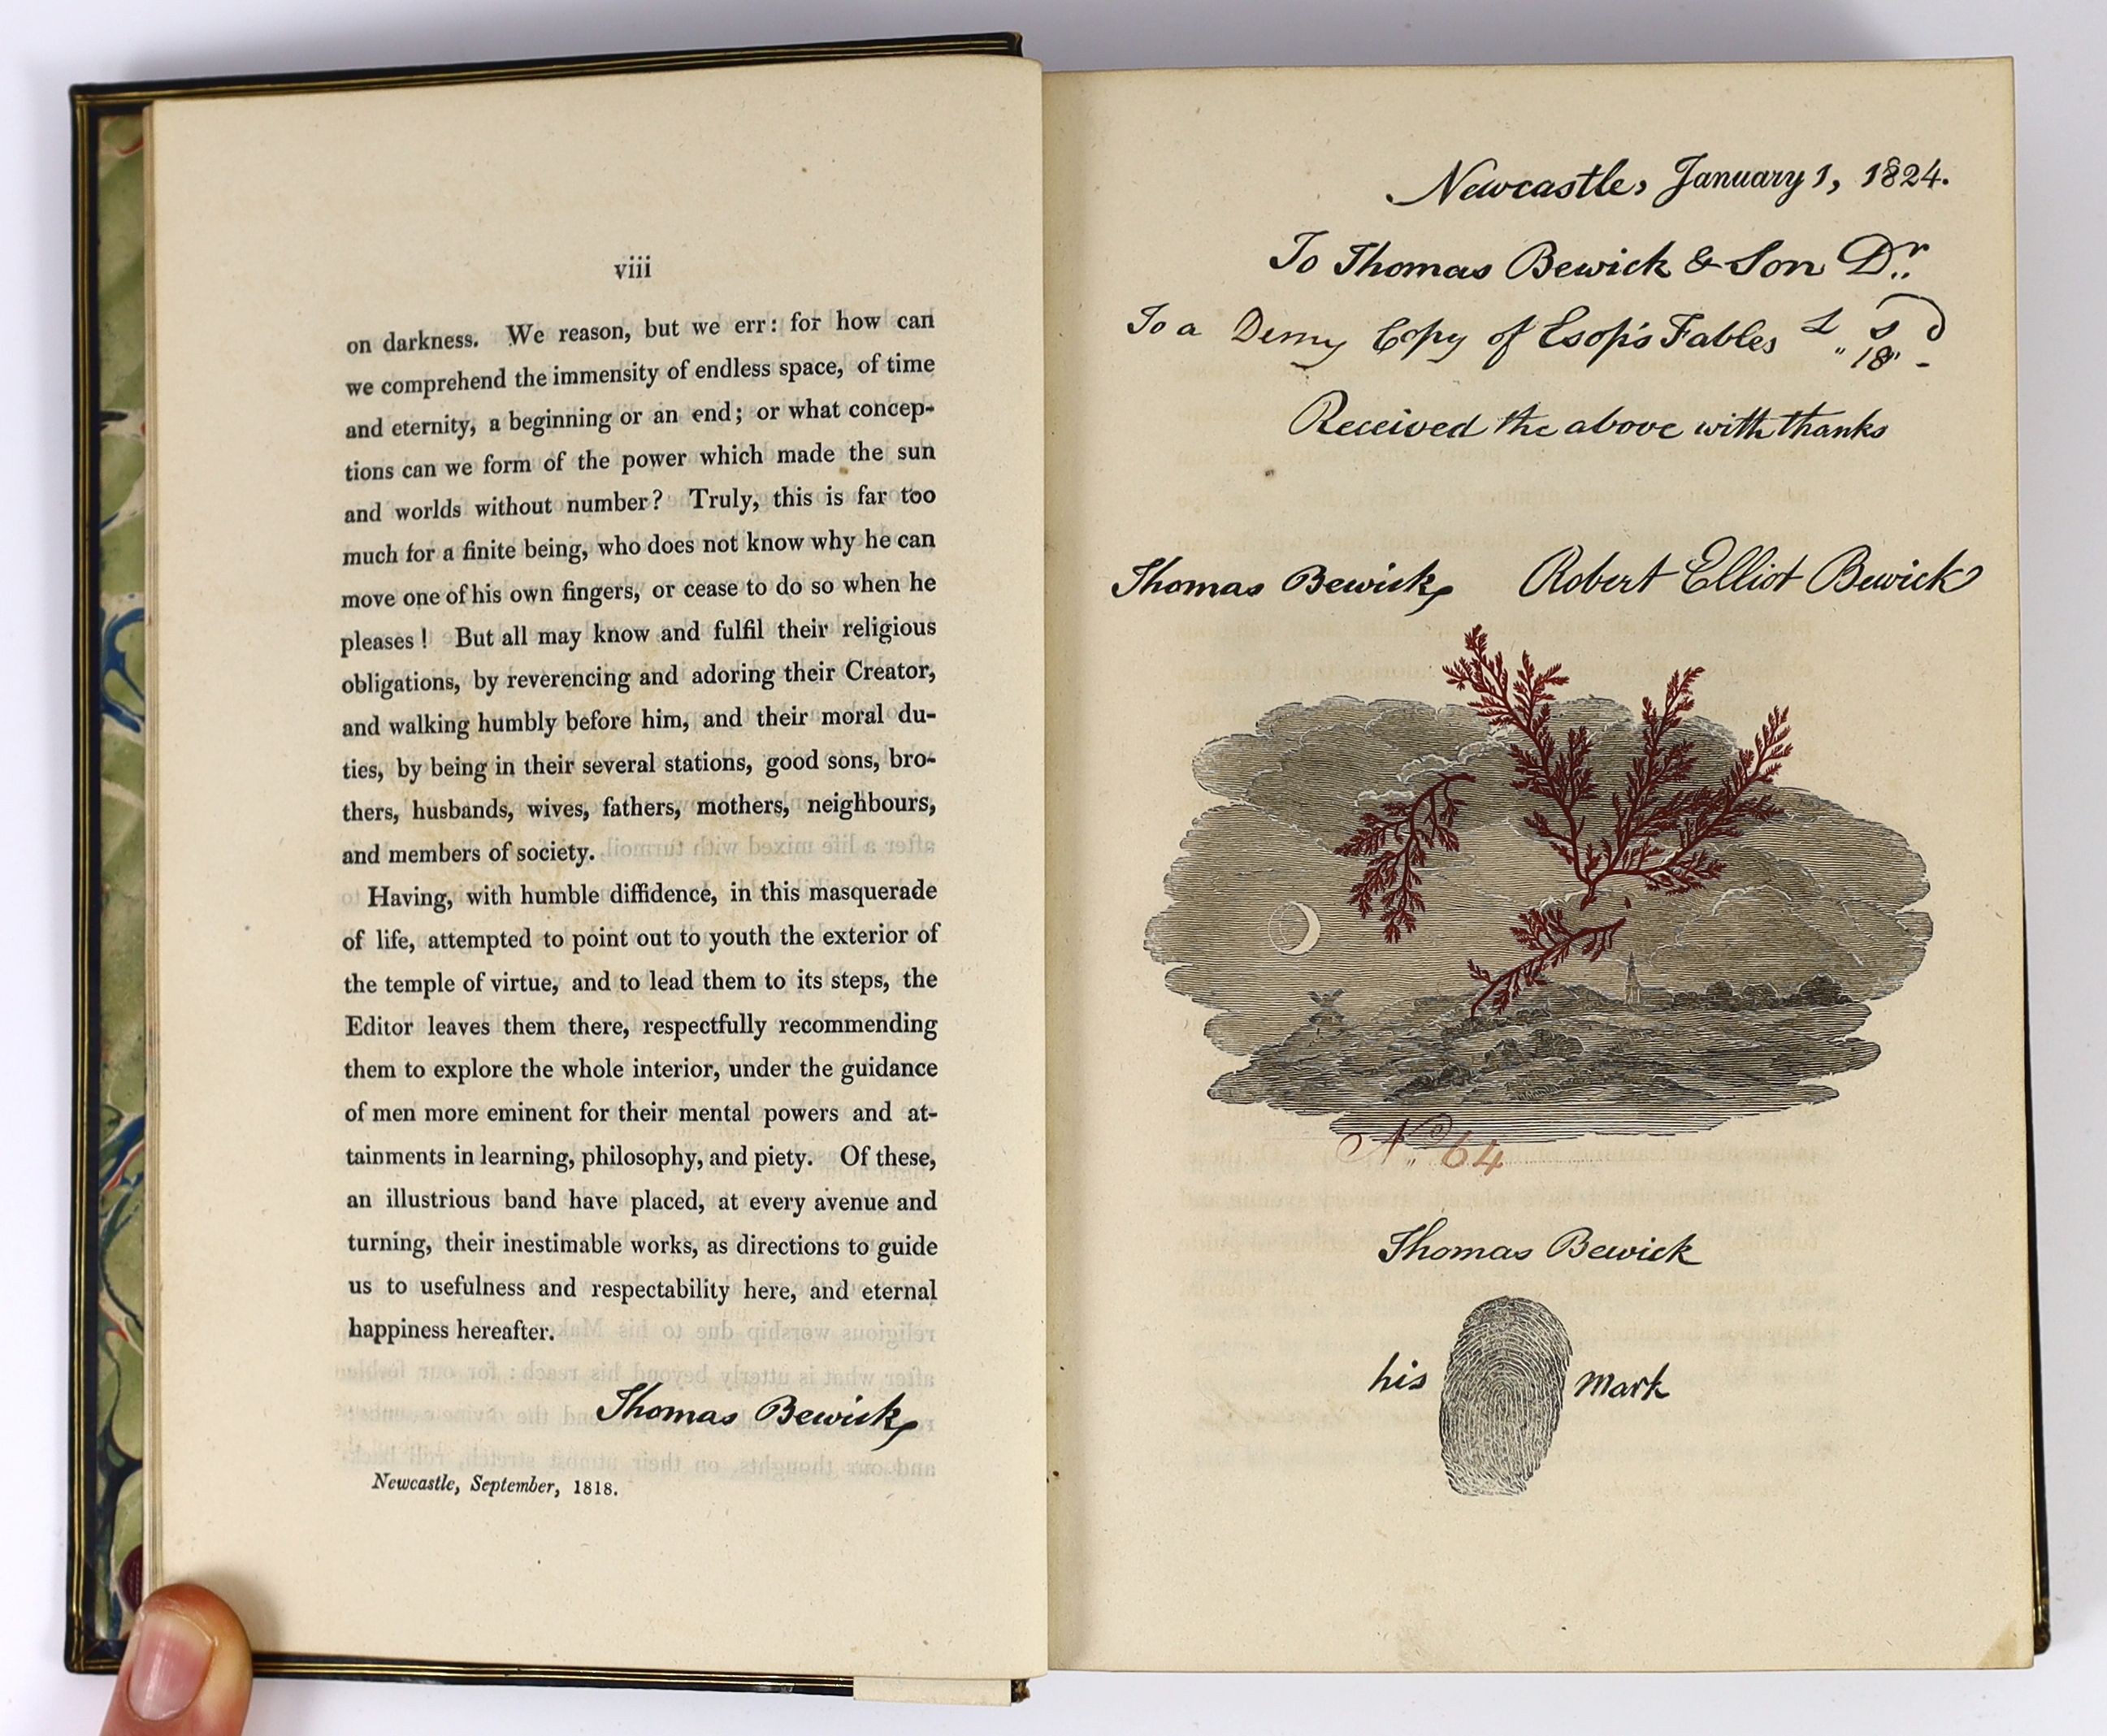 viii
on darkness. We reason, but we err: for how can
we comprehend the immensity of endless space, of time
and eternity, a beginning or an end; or what concep-
tions can we form of the power which made the sun
and worlds without number? Truly, this is far too
much for a finite being, who does not know why he can
move one of his own fingers, or cease to do so when he
pleases! But all may know and fulfil their religious
obligations, by reverencing and adoring their Creator,
and walking humbly before him, and their moral du-
ties, by being in their several stations, good sons, bro-
thers, husbands, wives, fathers, mothers, neighbours,
and members of society.
Having, with humble diffidence, in this masquerade
of life, attempted to point out to youth the exterior of
the temple of virtue, and to lead them to its steps, the
Editor leaves them there, respectfully recommending
them to explore the whole interior, under the guidance
of men more eminent for their mental powers and at-
tainments in learning, philosophy, and piety. Of these,
an illustrious band have placed, at every avenue and
turning, their inestimable works, as directions to guide
us to usefulness and respectability here, and eternal
happiness hereafter.
Thomas Bewick
Newcastle, September, 1818.
Newcastle, January 1, 1824.
To Thomas Bewick & Son Dr.
To a Demy Copy of Esop's Fables £ s d
" 18" -
Received the above with thanks
Thomas Bewick Robert Elliot Bewick
No 64
Thomas Bewick
his mark